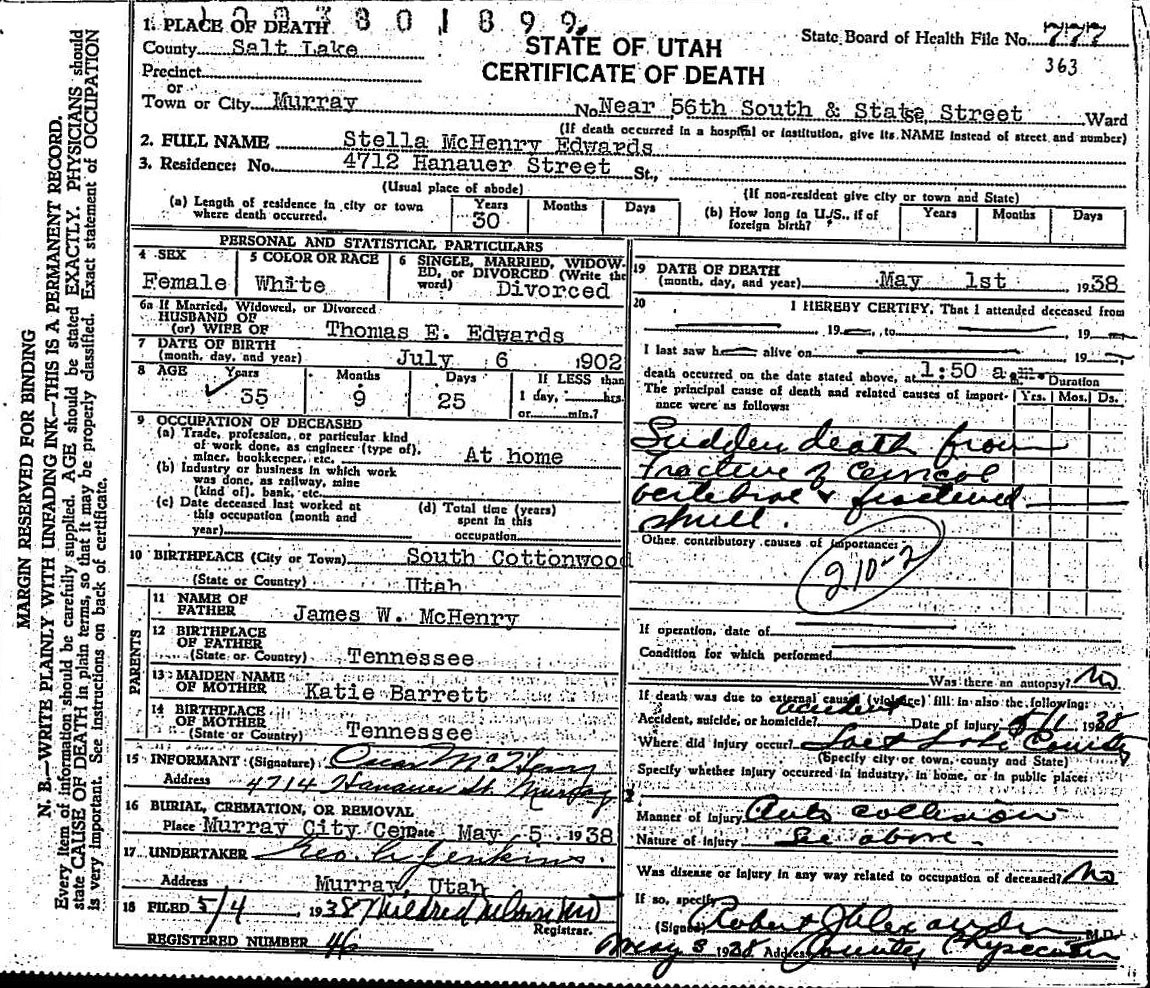 MARGIN RESERVED FOR BINDING
N. B.—WRITE PLAINLY WITH UNFADING INK—THIS IS A PERMANENT RECORD.
Every item of information should be carefully supplied. AGE should be stated EXACTLY. PHYSICIANS should
state CAUSE OF DEATH in plain terms, so that it may be properly classified. Exact statement of OCCUPATION
is very important. See instructions on back of certificate.
1. PLACE OF DEATH
County Salt Lake
Precinct
or
Town or City Murray
STATE OF UTAH
CERTIFICATE OF DEATH
State Board of Health File No. 777
363
No. Near 56th South & State Street Ward
(If death occurred in a hospital or institution, give its NAME instead of street and number)
2. FULL NAME Stella McHenry Edwards
3. Residence: No. 4712 Hanauer Street St.,
(Usual place of abode) (If non-resident give city or town and State)
(a) Length of residence in city or town where death occurred. Years 30 Months Days
(b) How long in U.S., if of foreign birth? Years Months Days
PERSONAL AND STATISTICAL PARTICULARS
4 SEX Female
5 COLOR OR RACE White
6 SINGLE, MARRIED, WIDOWED, or DIVORCED (Write the word) Divorced
6a If Married, Widowed, or Divorced
HUSBAND OF
(or) WIFE OF Thomas E. Edwards
7 DATE OF BIRTH
(month, day, and year) July 6 1902
8 AGE Years 35 Months 9 Days 25 If LESS than 1 day, hrs. or min.?
9 OCCUPATION OF DECEASED
(a) Trade, profession, or particular kind
of work done, as engineer (type of),
miner, bookkeeper, etc. At home
(b) Industry or business in which work
was done, as railway, mine
(kind of), bank, etc.
(c) Date deceased last worked at
this occupation (month and
year)
(d) Total time (years)
spent in this
occupation
10 BIRTHPLACE (City or Town) South Cottonwood
(State or Country) Utah
PARENTS
11 NAME OF FATHER James W. McHenry
12 BIRTHPLACE OF FATHER
(State or Country) Tennessee
13 MAIDEN NAME OF MOTHER Katie Barrett
14 BIRTHPLACE OF MOTHER
(State or Country) Tennessee
15 INFORMANT (Signature) Oscar McHenry
Address 4714 Hanauer St. Murray
16 BURIAL, CREMATION, OR REMOVAL
Place Murray City Cem Date May 5 1938
17 UNDERTAKER Geo. A Jenkins.
Address Murray, Utah
18 FILED 5/4, 1938 Mildred
Registrar.
REGISTERED NUMBER 46
19 DATE OF DEATH
(month, day, and year) May 1st 1938
20 I HEREBY CERTIFY, That I attended deceased from
19 , to 19
I last saw h alive on 19
death occurred on the date stated above, at 1:50 a m. Duration
The principal cause of death and related causes of importance were as follows: Yrs. Mos. Ds.
Sudden death from
fracture of cervical
vertebrae & fractured
skull.
Other contributory causes of importance:
210-2
If operation, date of
Condition for which performed
Was there an autopsy? No
If death was due to external cause (violence) fill in also the following:
Accident, suicide, or homicide? accident Date of injury 5/1 1938
Where did injury occur? Salt Lake County
(Specify city or town, county and State)
Specify whether injury occurred in industry, in home, or in public place:
Manner of injury Auto collision
Nature of injury See above.
Was disease or injury in any way related to occupation of deceased? No
If so, specify
(Signed) Robert J Alexander M.D.
May 3 1938 Address County Physician